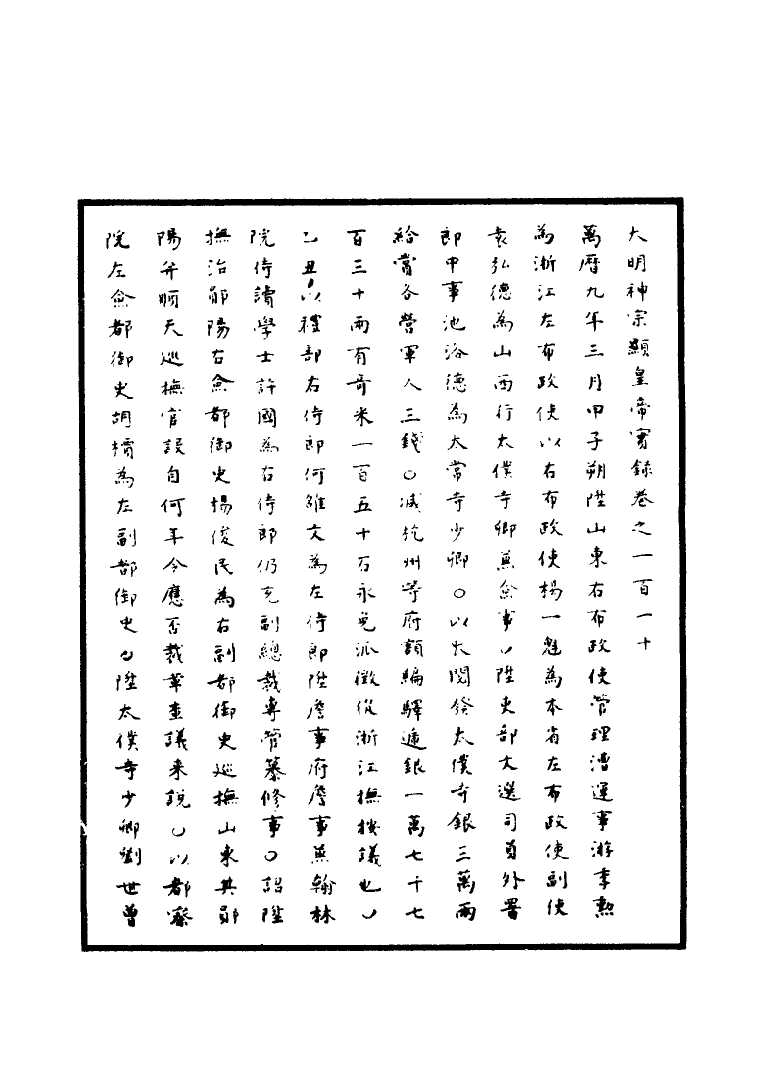 大明神宗顯皇帝實錄卷之一百一十
萬曆九年三月甲子朔陞山東右布政使管理漕運事游季勲
為浙江左布政使以右布政使楊一魁為本省左布政使副使
袁弘德為山西行太僕寺卿蒹僉事○陞吏部文選司員外署
郎中事池浴德為太常寺少卿○以大閱發太僕寺銀三萬兩
給賞各營軍人三錢○減杭州等府額編驛遞銀一萬七千七
百三十兩有奇米一百五十石永免派徵從浙江撫按議也○
乙丑以禮部右侍郎何雒文為左侍郎陞詹事府詹事蒹翰林
院侍讀學士許國為右侍郎仍充副總裁專管纂修事○詔陞
撫治鄖陽右僉都御史楊俊民為右副都御史巡撫山東其鄖
陽并順天巡撫官設自何年今應否裁革查議来說○以都察
院左僉都御史胡檟為左副都御史○陞太僕寺少卿劉世曾